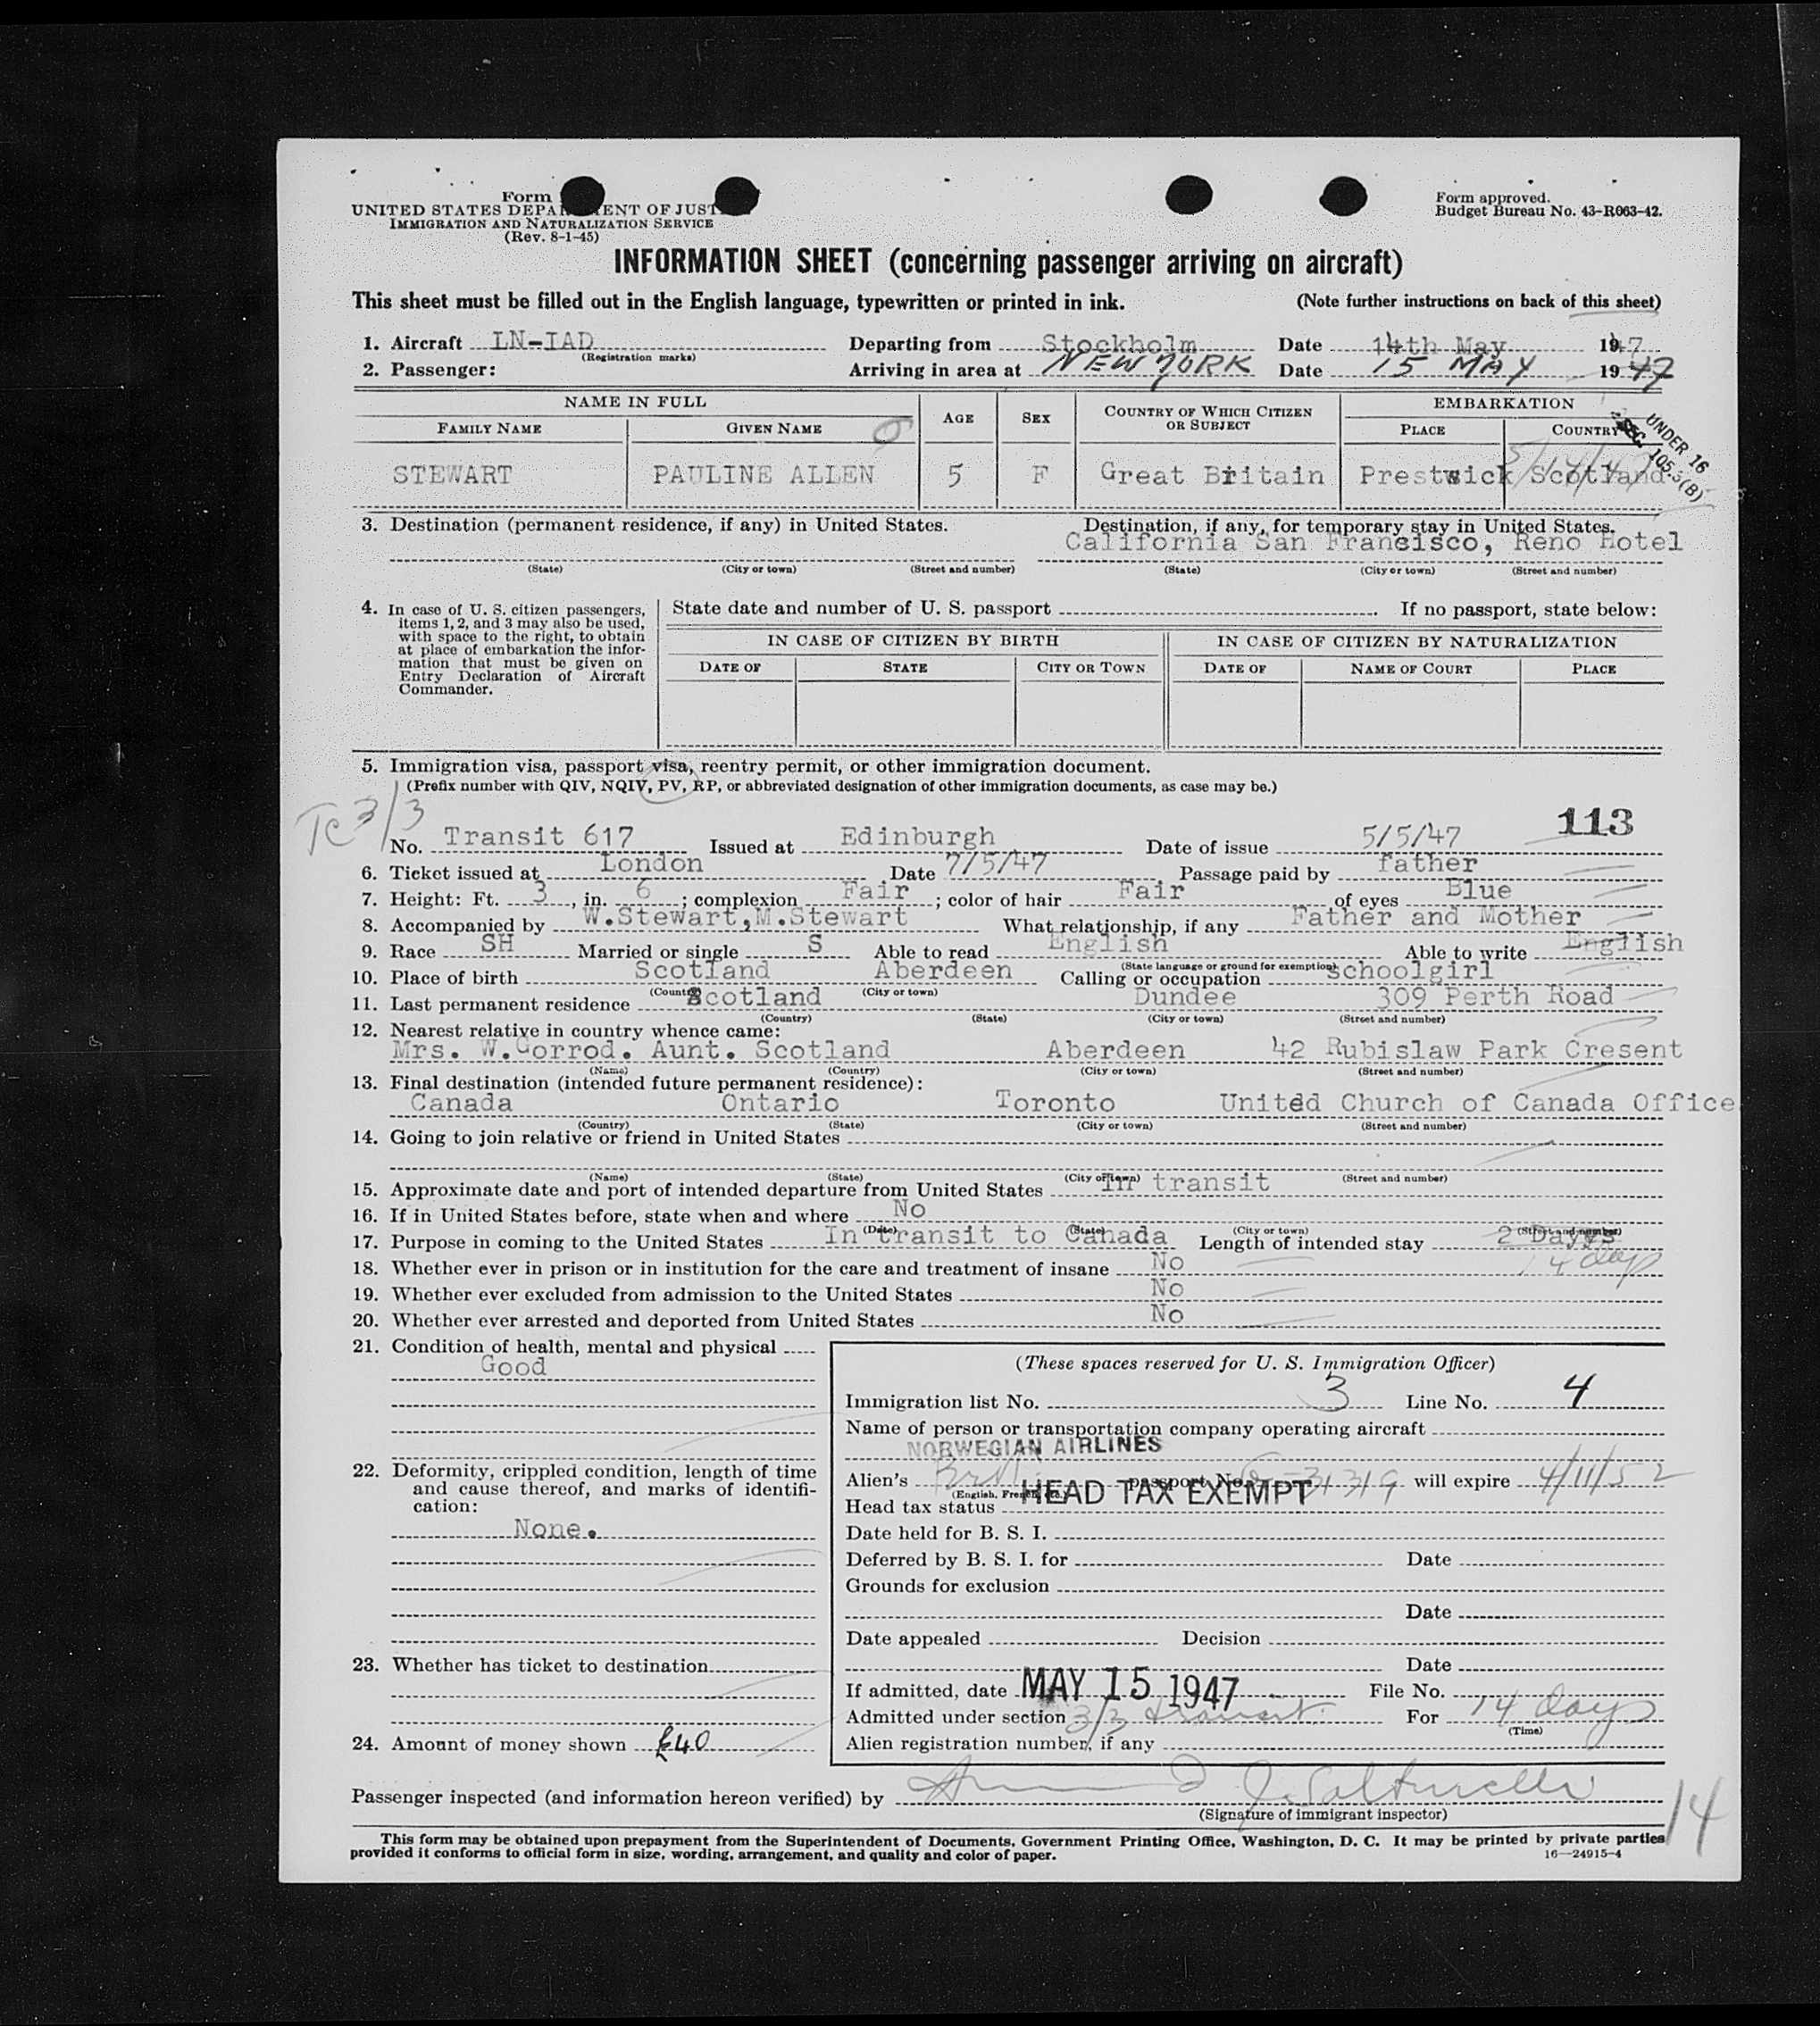 Form
UNITED STATES DEPARTMENT OF JUST
IMMIGRATION AND NATURALIZATION SERVICE
(Rev. 8-1-45)
Form approved.
Budget Bureau No. 43-R063-42.
INFORMATION SHEET (concerning passenger arriving on aircraft)
This sheet must be filled out in the English language, typewritten or printed in ink. (Note further instructions on back of this sheet)
1. Aircraft LN-IAD Departing from Stockholm Date 14th May 1947
(Registration marks)
2. Passenger: Arriving in area at NEW YORK Date 15 MAY 1947
NAME IN FULL AGE SEX COUNTRY OF WHICH CITIZEN OR SUBJECT EMBARKATION
FAMILY NAME GIVEN NAME PLACE COUNTRY
UNDER 16
SEC. 105.3(B)
STEWART PAULINE ALLEN 5 F Great Britain Prestwick Scotland
3. Destination (permanent residence, if any) in United States. Destination, if any, for temporary stay in United States.
California San Francisco, Reno Hotel
(State) (City or town) (Street and number) (State) (City or town) (Street and number)
4. In case of U. S. citizen passengers, items 1, 2, and 3 may also be used, with space to the right, to obtain at place of embarkation the information that must be given on Entry Declaration of Aircraft Commander.
State date and number of U. S. passport If no passport, state below:
IN CASE OF CITIZEN BY BIRTH IN CASE OF CITIZEN BY NATURALIZATION
DATE OF STATE CITY OR TOWN DATE OF NAME OF COURT PLACE
5. Immigration visa, passport visa, reentry permit, or other immigration document.
(Prefix number with QIV, NQIV, PV, RP, or abbreviated designation of other immigration documents, as case may be.)
TC 3/3
113
No. Transit 617 Issued at Edinburgh Date of issue 5/5/47
6. Ticket issued at London Date 7/5/47 Passage paid by father
7. Height: Ft. 3, in. 6; complexion Fair; color of hair Fair of eyes Blue
8. Accompanied by W.Stewart,M.Stewart What relationship, if any Father and Mother
9. Race SH Married or single S Able to read English Able to write English
(State language or ground for exemption)
10. Place of birth Scotland Aberdeen Calling or occupation schoolgirl
(Country) (City or town)
11. Last permanent residence Scotland Dundee 309 Perth Road
(Country) (State) (City or town) (Street and number)
12. Nearest relative in country whence came:
Mrs. W.Gorrod. Aunt. Scotland Aberdeen 42 Rubislaw Park Cresent
(Name) (Country) (City or town) (Street and number)
13. Final destination (intended future permanent residence):
Canada Ontario Toronto United Church of Canada Office
(Country) (State) (City or town) (Street and number)
14. Going to join relative or friend in United States
(Name) (State) (City or town) (Street and number)
15. Approximate date and port of intended departure from United States In transit
16. If in United States before, state when and where No
(Date) (State) (City or town) (Street and number)
17. Purpose in coming to the United States In transit to Canada Length of intended stay 2 Days
14 days
18. Whether ever in prison or in institution for the care and treatment of insane No
19. Whether ever excluded from admission to the United States No
20. Whether ever arrested and deported from United States No
21. Condition of health, mental and physical
Good
22. Deformity, crippled condition, length of time and cause thereof, and marks of identification:
None.
23. Whether has ticket to destination
24. Amount of money shown £40
(These spaces reserved for U. S. Immigration Officer)
Immigration list No. 3 Line No. 4
Name of person or transportation company operating aircraft
NORWEGIAN AIRLINES
Alien's Brit. passport No. 3139 will expire 4/11/52
(English, French, etc.)
Head tax status HEAD TAX EXEMPT
Date held for B. S. I.
Deferred by B. S. I. for Date
Grounds for exclusion
Date
Date appealed Decision
Date
If admitted, date MAY 15 1947 File No.
Admitted under section 3/3 transit For 14 days
(Time)
Alien registration number, if any
Passenger inspected (and information hereon verified) by
(Signature of immigrant inspector)
14
This form may be obtained upon prepayment from the Superintendent of Documents, Government Printing Office, Washington, D. C. It may be printed by private parties
provided it conforms to official form in size, wording, arrangement, and quality and color of paper.
16—24915-4